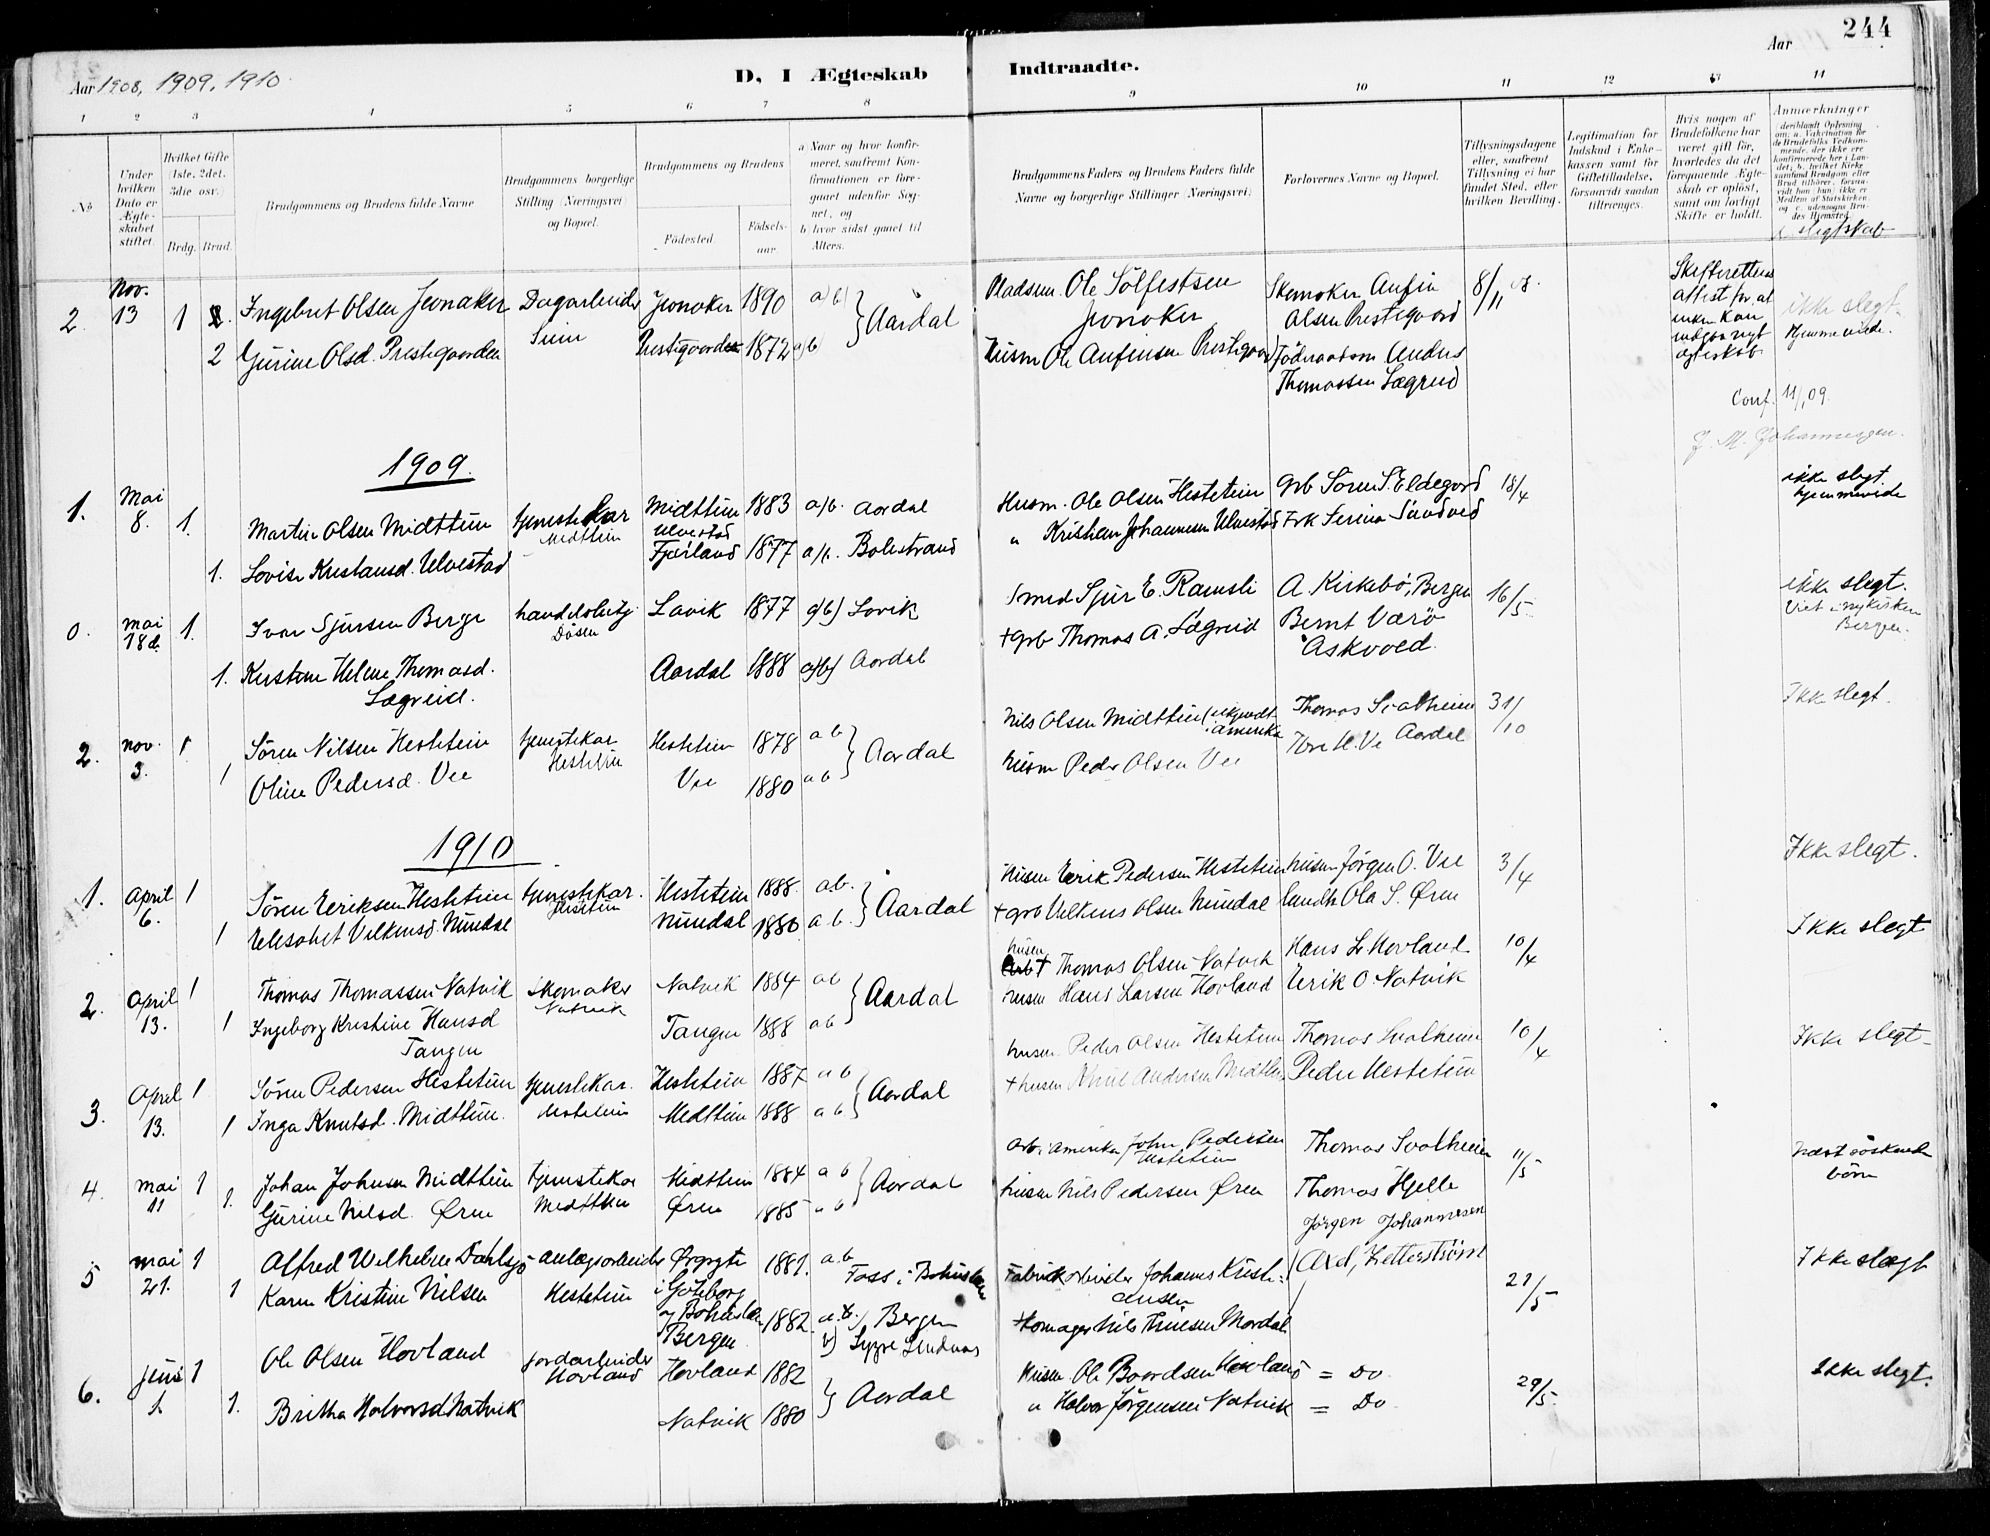 244
Aar 1908, 1909, 1910
D, I Ægteskab Indtraadte.
Aar
1 2 3 4 5 6 7 8 9 10 11 12 13 14
No
Under hvilken Dato er Ægteskabet stiftet.
Hvilket Gifte (1ste, 2det, 3die osv.
Brdg. Brud.
Brudgommens og Brudens fulde Navne
Brudgommens borgerlige Stilling (Næringsvei) og Bopæl.
Brudgommens og Brudens
Fødested. Fødselsaar
a Naar og hvor konfirmeret, saafremt Konfirmationen er foregaaet udenfor Sognet, og
b hvor sidst gaaet til Alters.
Brudgommens Faders og Brudens Faders fulde Navne og borgerlige Stillinger (Næringsvei)
Forlovernes Navne og Bopæl.
Tillysningsdagene eller, saafremt Tillysning ei har fundet Sted, efter hvilken Bevilling.
Legitimation for Indskud i Enkekassen samt for Giftetilladelse, forsaavidt saadan tiltrænges.
Hvis nogen af Brudefolkene har været gift før, hvorledes da det foregaaende Ægteskab er opløst, samt om lovligt Skifte er holdt.
Anmærkninger
slegtskab
2. Nov. 13 1 2. Ingebret Olsen Jevnaker Dagarbeider Seim Jevnaker 1890 a) b) } Aardal Pladsm. Ole Sølfestsen Jevnaker Skomaker Anfin Olsen Prestegaard 8/11 08. Skifterettens attest for at enken kan indgaa nyt egteskab ikke slegt. Hjemmevide.
2 Gurine Olsd. Prestegaarden 1872 a) b Husm Ole Anfinsen Prestegaard Føderaadsm Anders Thomassen Lægreid
Conf. 11/1 09.
J. M. Johannessen.
1909.
1. Mai 8. 1. Martin Olsen Midttun tjenestekar Midttun Midttun 1883 a/b. Aardal Husm. Ole Olsen Hestetein Grb Søren S. Eldegard 18/4 ikke slegt. hjemmevide
1. Lovise Kristiansd. Ulvestad Ulvestad Fjærland 1877 a/b. Balestrand " Kristian Johannesen Ulvestad Frk Serina Sandved
0. mai 18d. 1. Ivar Sjursen Berge handelsbetj. Døsen Lavik 1877 a) b) Lavik Smed Sjur E. Ramsli A. Kirkebø, Bergen 16/5 ikke slegt. Viet i nykirken Bergen.
1. Kristine Helene Thomasd. Lægreid. Aardal 1888 a) b) Aardal + grb Thomas A. Lægreid Bernt Værø Askvoll.
2. nov. 3. 1 Søren Nilsen Hestetein tjenestekar Hestetein Hestetein 1878 a b } Aardal Nils Olsen Midttun (ukjendt i Amerika Thomas Svalheim 31/10 Ikke slegt.
1 Oline Pedersd. Vee Vee 1880 a b husm Peder Olsen Vee Iver H. Ve Aardal
1910
1. April 6. 1 Søren Eriksen Hestetein tjenestekar. Hestetein Hestetein 1888. a b. } Aardal Husm Erik Pedersen Hestetein husm Jørgen O. Vee 3/4 Ikke slegt.
1 Elisabet Villumsd. Nundal Nundal 1880 a b. + grb Villums Olsen Nundal Landh Ola S. Øren
2. April 13. 1 Thomas Thomassen Natvik Skomaker Natvik Natvik 1884 a b } Aardal husm + Thomas Olsen Natvik Hans L. Hovland 10/4 Ikke slegt
1 Ingeborg Kristine Hansd Tangen Tangen 1888 a b husm Hans Larsen Hovland Erik O. Natvik
3. April 13. 1 Søren Pedersen Hestetun tjenestekar. Hestetein Hestetein 1887 a b } Aardal husm. Peder Olsen Hestetein Thomas Svalheim 10/4 Ikke slegt
1 Inga Knutsd. Midttun. Midttun 1888 a b + husm Knut Andersen Midttun Peder Hestetein
4. mai 11 1 Johan Johnsen Midttun tjenestekar Midttun Midttun 1884 a b } Aardal Arb. i Amerika John Pedersen Hestetein Thomas Svalheim 11/5 Næst søskende børn
1. Gurine Nilsd. Øren Øren 1885 a b husm Nils Pedersen Øren Thomas Hjelle
5 mai 21. 1 Alfred Wilhelm Dahlsjø anlægsarbeider Hestetein i Göteborg og Bohuslen 1881. a. b Foss i Bohuslen Fabrikarbeider Johannes Kristiansen Jørgen Johannesen Axel, Zetterstrøm 21/5 Ikke slægt
1 Karen Kristine Nilsen Bergen 1882 a. Bergen b) Lygre Lindaas Nils Mordal
6. Juni 1. 1 Ole Olsen Hovland Jordarbeider Hovland Hovland 1882 } Aardal Husm. Ole Baardsen Hovland = Do 29/5. Ikke slegt.
1. Britha Halvorsd Natvik Natvik 1880 " Halvor Jørgensen Natvik = Do